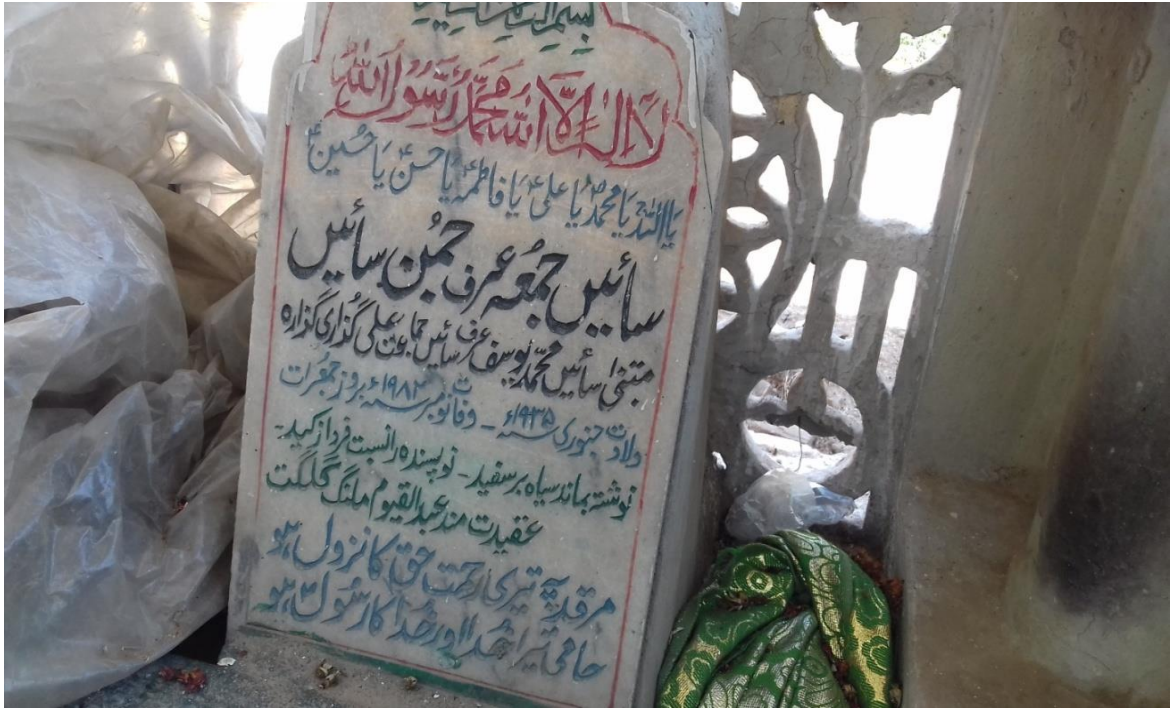 بسم اللہ الرحمن الرحیم
لا الہ الا اللہ محمد رسول اللہ
یا اللہ یا محمدؐ یا علیؑ یا فاطمہؑ یا حسنؑ یا حسینؑ
سائیں جمعہ عرف جمن سائیں
متبنٰی سائیں محمد یوسف عرف سائیں جمابون علی گذاری گذارہ
ولادت جنوری سنہ ۱۹۳۵ء ۔ وفات نومبر سنہ ۱۹۸۲ء بروز جمعرات
نوشتہ بماند سیاہ بر سفید ۔ نویسندہ را نیست فردا ز کید ۔
عقیدت مند عبدالقیوم ملنگ گلگت
مرقد پہ تیری رحمت حق کا نزول ہو
حامی تیرا خدا اور خدا کا رسولؐ ہو